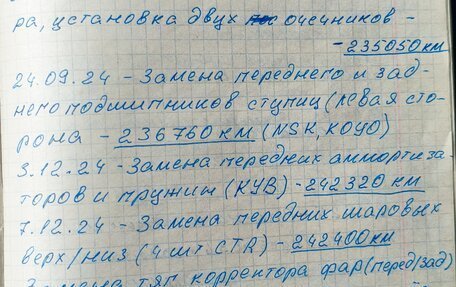 ра, установка двух очечников -
- 235050 км
24.09.24 - Замена переднего и зад-
него подшипников ступиц (левая сто-
рона - 236760 км (NSK, KOYO)
3.12.24 - Замена передних амморти за-
торов и пружин (КУВ) - 242320 км
7.12.24 - Замена передних шаровых
верх/низ (4 шт. CTR) - 242400 км
тяг корректора фар (перед/зад)